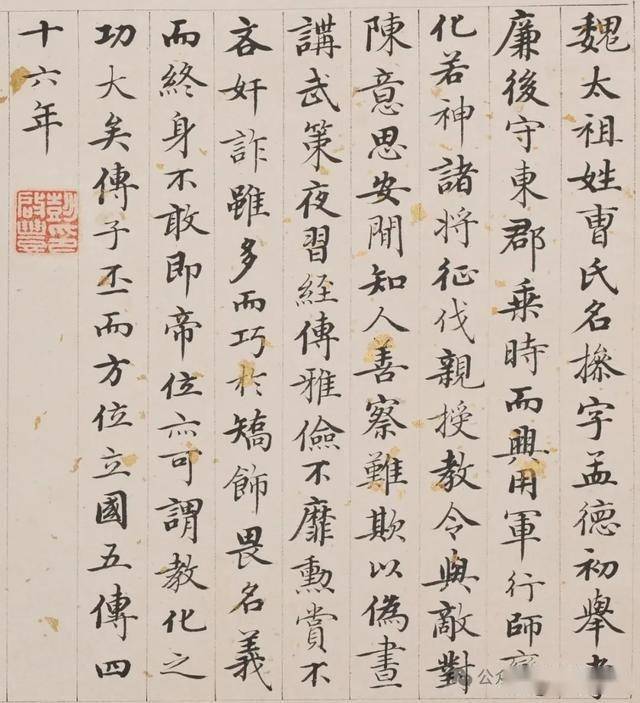 魏太祖姓曹氏名操字孟德初舉孝
廉後守東郡乗時而興用軍行師變
化若神諸将征伐親授教令與敵對
陳意思安閒知人善察難欺以偽晝
講武策夜習経傳雅儉不靡勳賞不
吝奸詐雖多而巧於矯飾畏名義
而終身不敢即帝位亦可謂教化之
功大矣傳子丕而方位立國五傳四
十六年